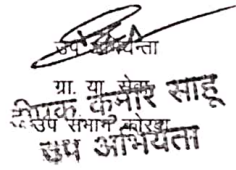 उप अभियन्ता
ग्रा. या. सेवा
दीपक कुमार साहू
उप संभाग कोरबा
उप अभियंता